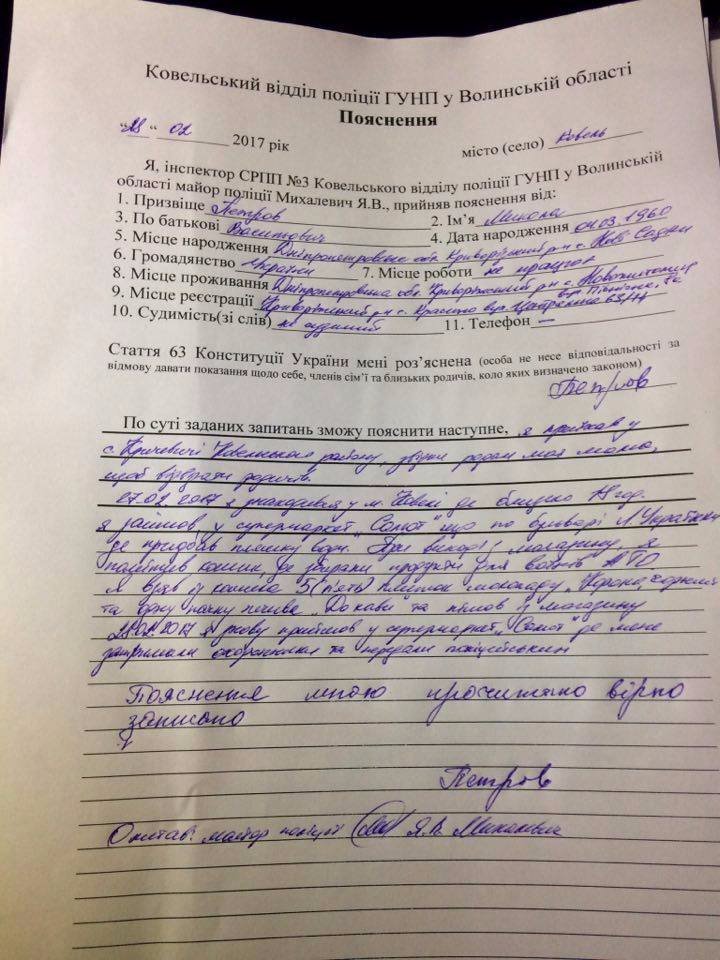 Ковельський відділ поліції ГУНП у Волинській області
Пояснення
"28" 02 2017 рік місто (село) Ковель
Я, інспектор СРПП №3 Ковельського відділу поліції ГУНП у Волинській
області майор поліції Михалевич Я.В., прийняв пояснення від:
1. Призвіще Петров 2. Ім'я Микола
3. По батькові 4. Дата народження 04.03.1960
5. Місце народження Дніпропетровська обл. Криворізький р-н с.
6. Громадянство України 7. Місце роботи не працює
8. Місце проживання Дніпропетровська обл. Криворізький р-н с.
9. Місце реєстрації Криворізький р-н с. вул. 68/44
10. Судимість(зі слів) не судимий 11. Телефон —
Стаття 63 Конституції України мені роз'яснена (особа не несе відповідальності за
відмову давати показання щодо себе, членів сім'ї та близьких родичів, коло яких визначено законом)
Петров
По суті заданих запитань зможу пояснити наступне, я приїхав у
с. Ковельського району, звідки родом моя мама,
щоб відвідати родичів.
27.02.2017 я знаходився у м. Ковелі де близько год.
я зайшов у супермаркет "Сомот" що по бульварі Л. Українки
де придбав пляшку води. При виході з магазину я
помітив кошик, де збирали продукти для воїнів АТО
я взяв із кошика 5 (п'ять) плиток шоколаду "Корона"
та одну пачку печива "До кави" та пішов із магазину
28.02.2017 я знову прийшов у супермаркет "Сомот" де мене
затримали охоронники та передали поліцейським
Пояснення мною прочитано вірно
записано
Петров
Опитав: майор поліції Я.В. Михалевич